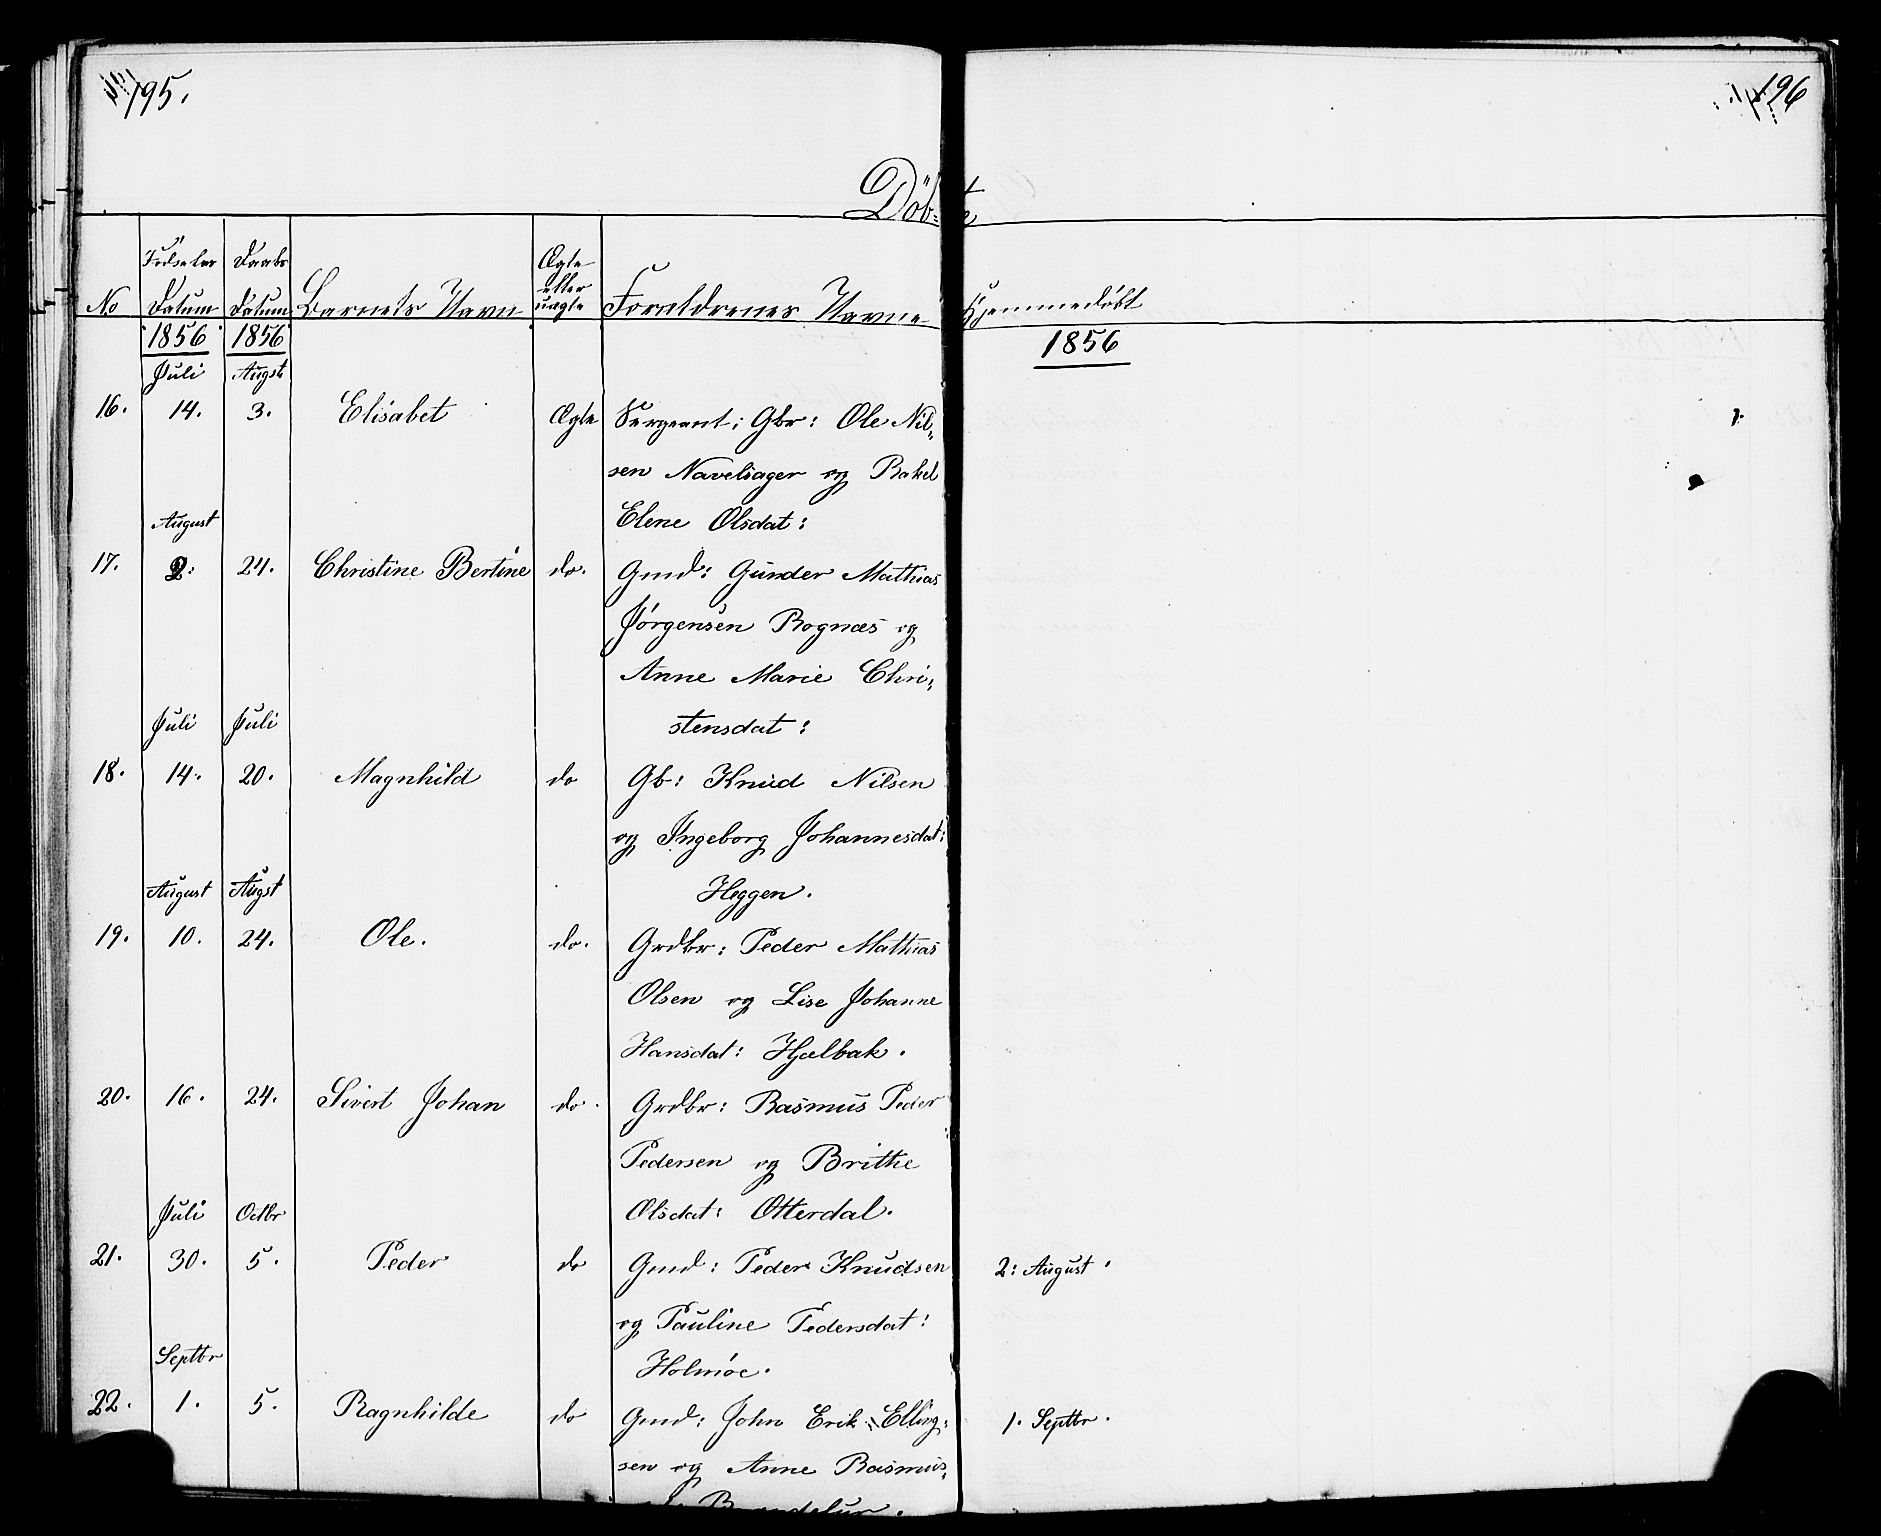 195.
196
Döbte
No
Födselss Datum
Daabs Datum
Barnets Navn
Ægte eller uægte
Forældrenes Navne
Hjemmedöbt
1856 1856
1856
Juli Augst
16. 14. 3. Elisabet Ægte Sergeant; Gbr: Ole Nil-
sen Navelsager og Rakel
August Elene Olsdat:
17. 2. 24. Christine Bertine do. Gmd: Gunder Mathias
Jørgensen Rognæs og
Anne Marie Chri-
Juli Juli stensdat:
18. 14. 20. Magnhild do Gb: Knud Nilsen
og Ingeborg Johannesdat:
August Augst Heggen.
19. 10. 24. Ole. do. Grdbr: Peder Mathias
Olsen og Lise Johanne
Hansdat: Hjelbak.
20. 16. 24. Sivert Johan do. Grdbr: Rasmus Peder
Pedersen og Brithe
Juli Octbr Olsdat: Otterdal.
21. 30. 5. Peder do Gmd: Peder Knudsen 2: August.
og Pauline Pedersdat:
Septbr Holmöe.
22. 1. 5. Ragnhilde do Gmd: John Erik Elling- 1. Septbr.
sen og Anne Rasmus-